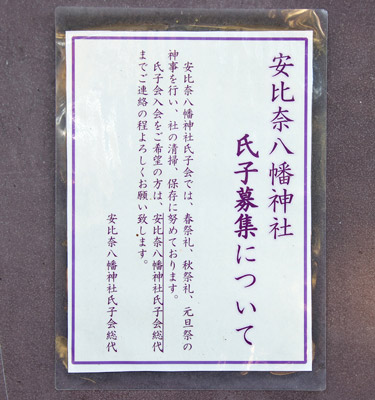 安比奈八幡神社
氏子募集について
安比奈八幡神社氏子会では、春祭礼、秋祭礼、元旦祭の
神事を行い、社の清掃、保存に努めております。
氏子会入会をご希望の方は、安比奈八幡神社氏子会総代
までご連絡の程よろしくお願い致します。
安比奈八幡神社氏子会総代